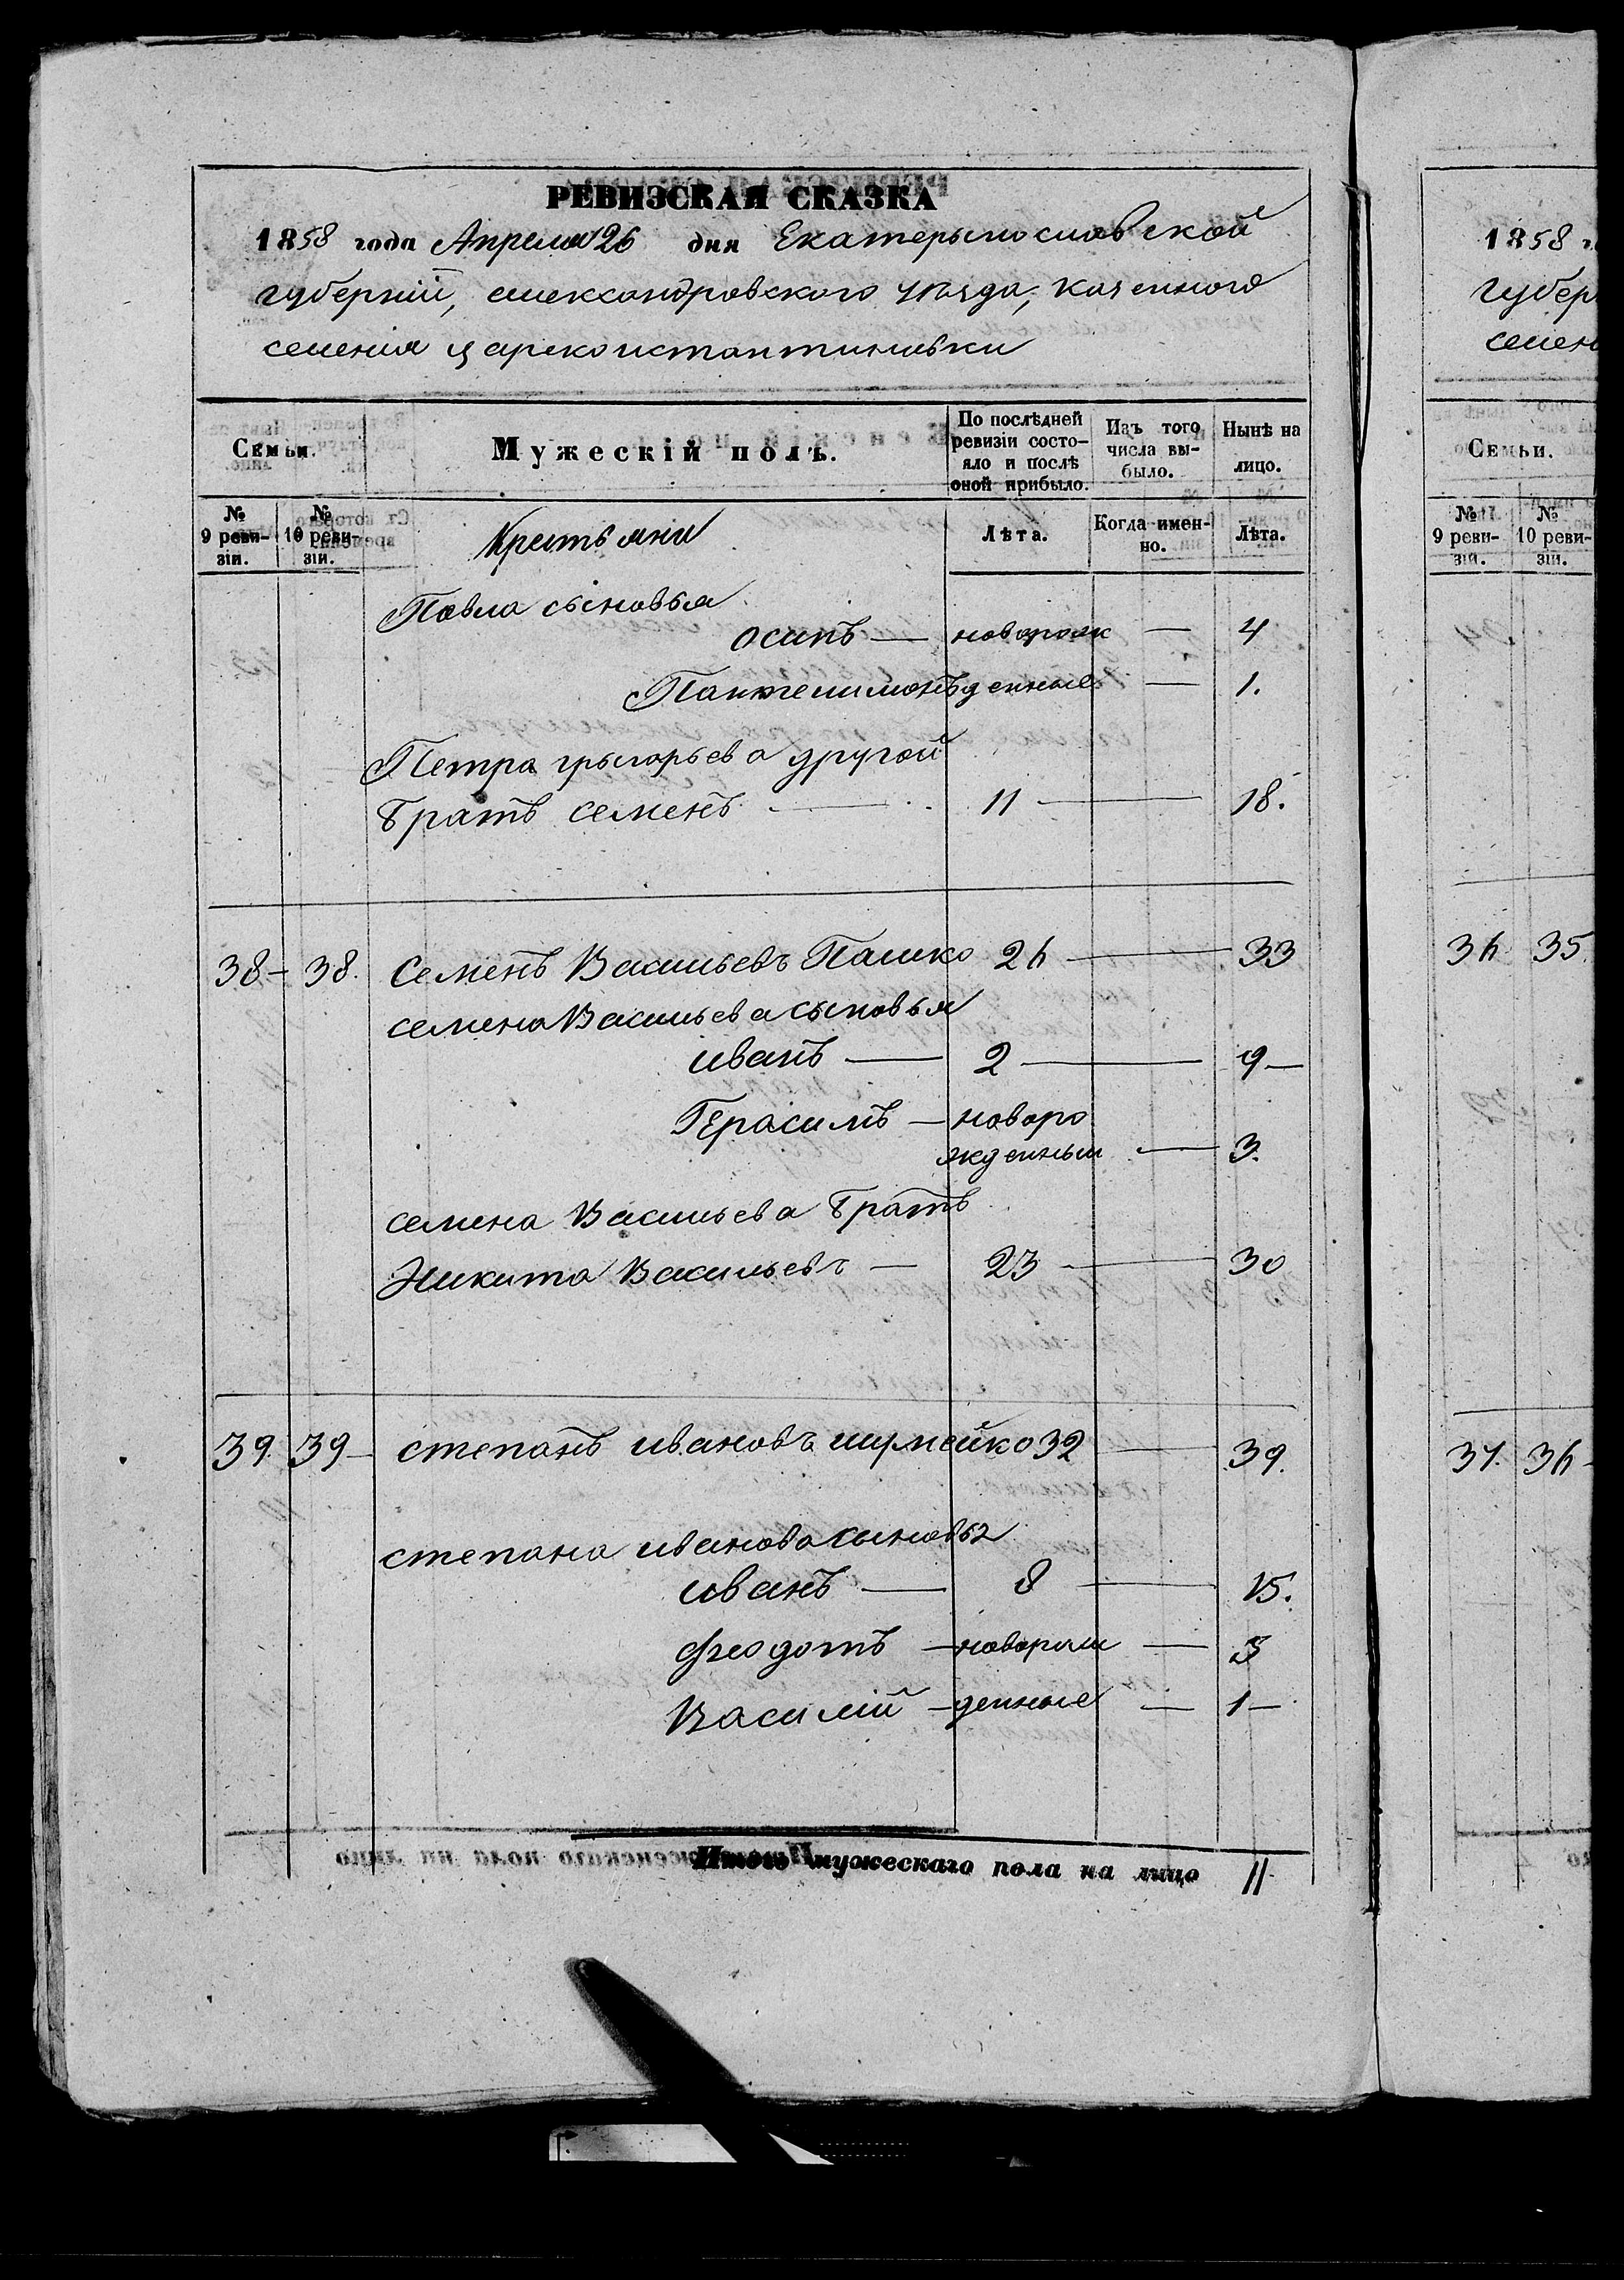 РЕВИЗСКАЯ СКАЗКА
1858 года Апреля 26 дня Екатерынославской
губернии, александровского уезда, казенного
селения цареконстантиновки
Семьи.
Мужескій полъ.
По послѣдней ревизіи состо-
яло и послѣ оной прибыло.
Изъ того числа вы-
было.
Нынѣ на лицо.
№ 9 реви-
зіи.
№ 10 реви-
зіи.
Крестьяни
Лѣта.
Когда имен-
но.
Лѣта.
Павла сыновья
осипъ — новорож — 4
Пантелимонъ денные — 1.
Петра грыгорьева другой
братъ семенъ — 11 — 18.
38 — 38. Семенъ Васильевъ Пашко 26 — 33
семена Васильева сыновья
иванъ — 2 — 9 —
Герасимъ — новоро
жденный — 3.
семена Васильева братъ
Никита Васильевъ — 23 — 30
39. 39 — степанъ ивановъ шумейко 32 — 39.
степана иванова сыновья
иванъ — 8 — 15.
феодотъ — новорож — 3
Василій — денные — 1 —
Итого мужескаго пола на лицо 11
1858 г
губер
селен
Семьи.
№ 9 реви-
зіи.
№ 10 реви-
зіи.
36 35.
37. 36 -